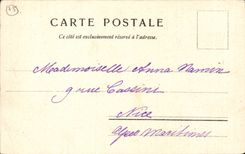 CARTE POSTALE
Ce côté est exclusivement réservé à l'adresse.
Mademoiselle Anna
9 rue Cassini
Nice
Alpes Maritimes